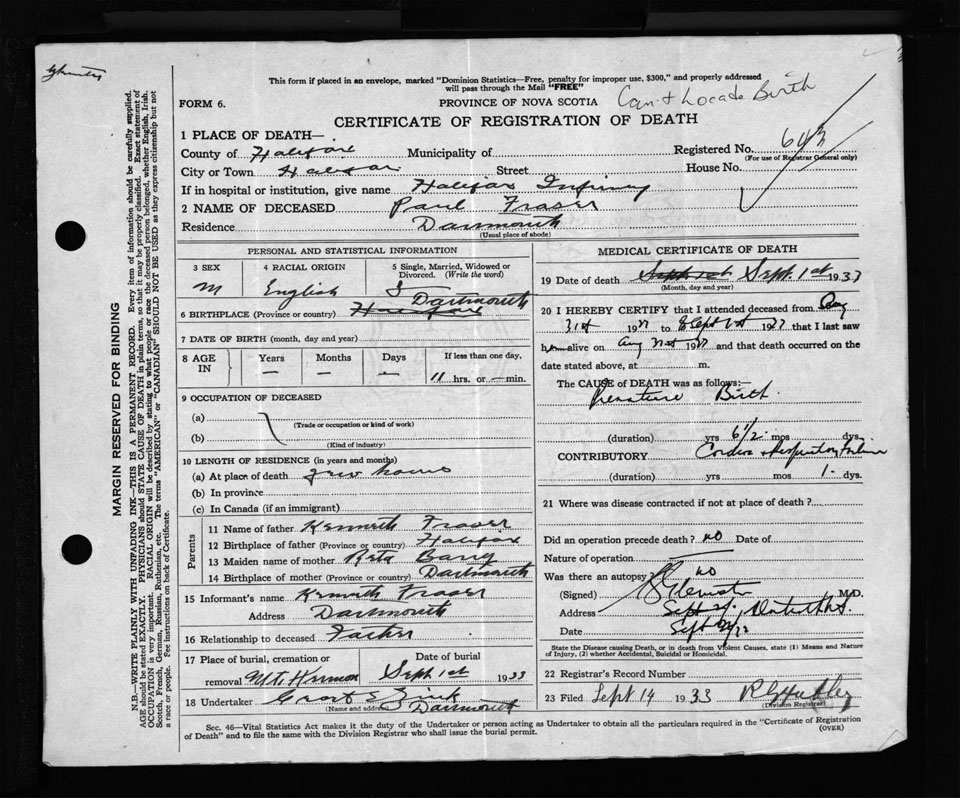 This form if placed in an envelope, marked "Dominion Statistics—Free, penalty for improper use, $300," and properly addressed
will pass through the Mail "FREE"
FORM 6.
PROVINCE OF NOVA SCOTIA
Can't Locate Birth
CERTIFICATE OF REGISTRATION OF DEATH
1 PLACE OF DEATH—
County of Halifax Municipality of Registered No.
(For use of Registrar General only)
City or Town Halifax Street House No.
If in hospital or institution, give name Halifax Infirmy
2 NAME OF DECEASED Paul Fraser
Residence Dartmouth
(Usual place of abode)
PERSONAL AND STATISTICAL INFORMATION
3 SEX 4 RACIAL ORIGIN 5 Single, Married, Widowed or Divorced. (Write the word)
M English S
Dartmouth
6 BIRTHPLACE (Province or country) Halifax
7 DATE OF BIRTH (month, day and year)
8 AGE IN Years Months Days If less than one day,
— — — 11 hrs. or — min.
9 OCCUPATION OF DECEASED
(a)
(Trade or occupation or kind of work)
(b)
(Kind of industry)
10 LENGTH OF RESIDENCE (in years and months)
(a) At place of death few hours
(b) In province
(c) In Canada (if an immigrant)
Parents
11 Name of father Kenneth Fraser
12 Birthplace of father (Province or country) Halifax
13 Maiden name of mother Reta
14 Birthplace of mother (Province or country) Dartmouth
15 Informant's name Kenneth Fraser
Address Dartmouth
16 Relationship to deceased Father
17 Place of burial, cremation or removal Mt. Hermon
Date of burial Sept 1st 1933
18 Undertaker Zink
(Name and address) Dartmouth
MEDICAL CERTIFICATE OF DEATH
19 Date of death Sept. 1st 1933
(Month, day and year)
20 I HEREBY CERTIFY that I attended deceased from Aug
31st 19 to Sept 1st 19 that I last saw
h alive on Aug 19 and that death occurred on the
date stated above, at m.
The CAUSE of DEATH was as follows:—
Premature Birth.
(duration) yrs 6 1/2 mos dys.
CONTRIBUTORY Cardiac & Respiratory Failure
(duration) yrs mos 1 dys.
21 Where was disease contracted if not at place of death?
Did an operation precede death? no Date of
Nature of operation
Was there an autopsy no
(Signed) M.D.
Address Dartmouth N.S.
Date Sept
State the Disease causing Death, or in death from Violent Causes, state (1) Means and Nature
of Injury, (2) whether Accidental, Suicidal or Homicidal.
22 Registrar's Record Number
23 Filed Sept 14 1933
(Division Registrar)
Sec. 46—Vital Statistics Act makes it the duty of the Undertaker or person acting as Undertaker to obtain all the particulars required in the "Certificate of Registration
of Death" and to file the same with the Division Registrar who shall issue the burial permit.
(OVER)
MARGIN RESERVED FOR BINDING
N.B.—WRITE PLAINLY WITH UNFADING INK—THIS IS A PERMANENT RECORD. Every item of information should be carefully supplied.
AGE should be stated EXACTLY. PHYSICIANS should STATE CAUSE OF DEATH in plain terms, so that it may be properly classified. Exact statement of
OCCUPATION is very important. RACIAL ORIGIN will be described by stating to what people or race the deceased person belonged, whether English, Irish,
Scotch, French, German, Russian, Ruthenian, etc. The terms "AMERICAN" or "CANADIAN" SHOULD NOT BE USED as they express citizenship but not
a race or people. See instructions on back of Certificate.